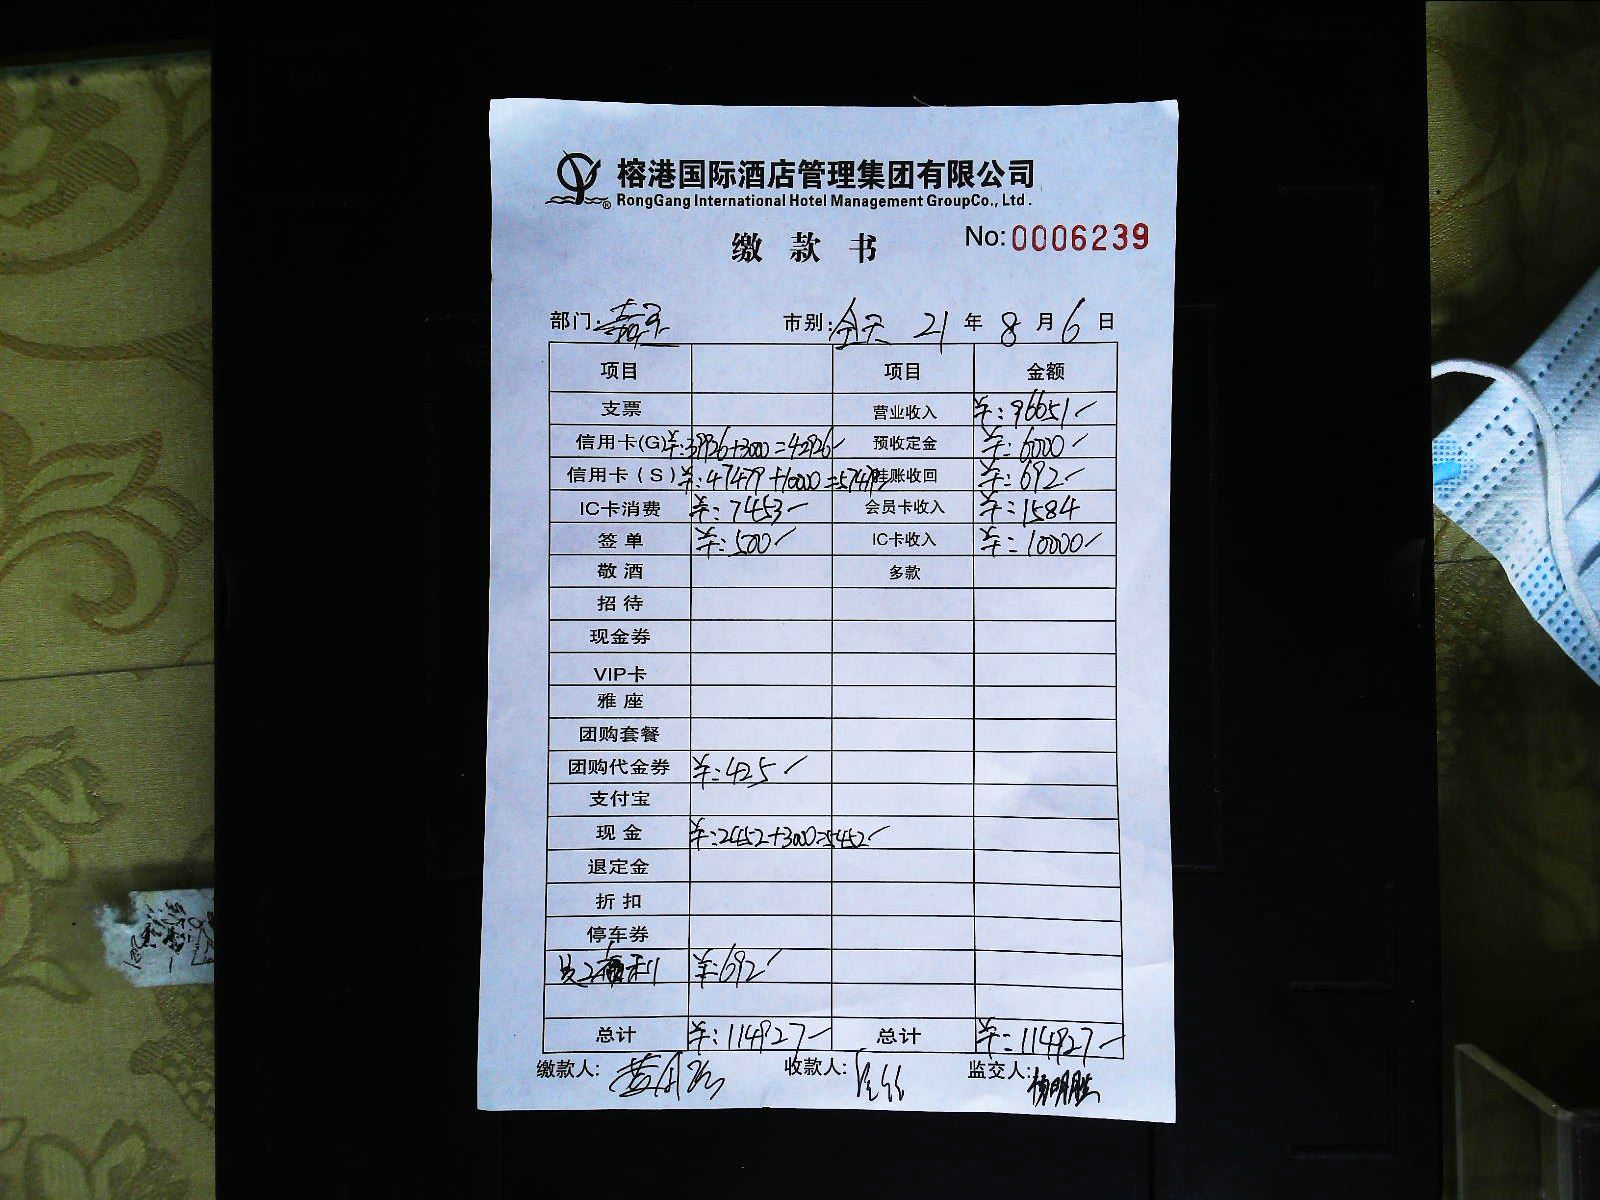 榕港国际酒店管理集团有限公司
RongGang International Hotel Management GroupCo., Ltd.
缴 款 书 No:0006239
部门: 市别:全天 21 年 8 月 6 日
项目 项目 金额
支票 营业收入 ¥:96651
信用卡(G) ¥:39926+3000=42926 预收定金 ¥:6000
信用卡(S) ¥:47479+10000=57479 挂账收回 ¥:692
IC卡消费 ¥:7453 会员卡收入 ¥:1584
签 单 ¥:500 IC卡收入 ¥:10000
敬 酒 多款
招 待
现金券
VIP卡
雅 座
团购套餐
团购代金券 ¥:425
支付宝
现 金 ¥:2452+3000=5452
退定金
折 扣
停车券
员工福利 ¥:692
总计 ¥:114927 总计 ¥:114927
缴款人: 收款人: 监交人:杨明胜